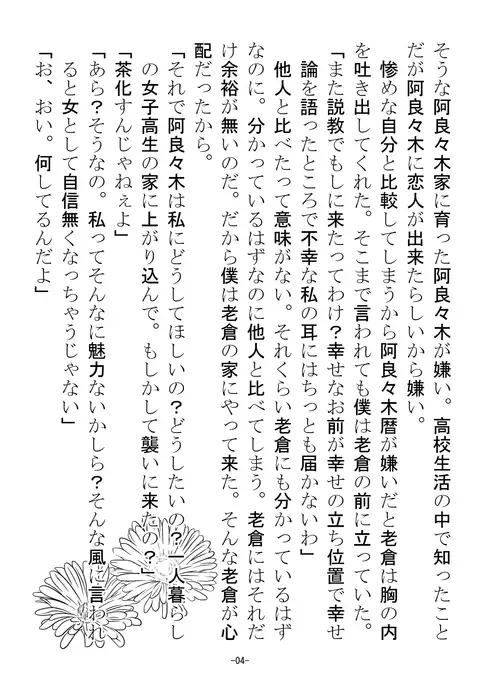 そうな阿良々木家に育った阿良々木が嫌い。高校生活の中で知ったこと
だが阿良々木に恋人が出来たらしいから嫌い。
惨めな自分と比較してしまうから阿良々木暦が嫌いだと老倉は胸の内
を吐き出してくれた。そこまで言われても僕は老倉の前に立っていた。
「また説教でもしに来たってわけ?幸せなお前が幸せの立ち位置で幸せ
論を語ったところで不幸な私の耳にはちっとも届かないわ」
他人と比べたって意味がない。それくらい老倉にも分かっているはず
なのに。分かっているはずなのに他人と比べてしまう。老倉にはそれだ
け余裕が無いのだ。だから僕は老倉の家にやって来た。そんな老倉が心
配だったから。
「それで阿良々木は私にどうしてほしいの?どうしたいの?一人暮らし
の女子高生の家に上がり込んで。もしかして襲いに来たの?」
「茶化すんじゃねぇよ」
「あら?そうなの。私ってそんなに魅力ないかしら?そんな風に言われ
ると女として自信無くなっちゃうじゃない」
「お、おい。何してるんだよ」
-04-